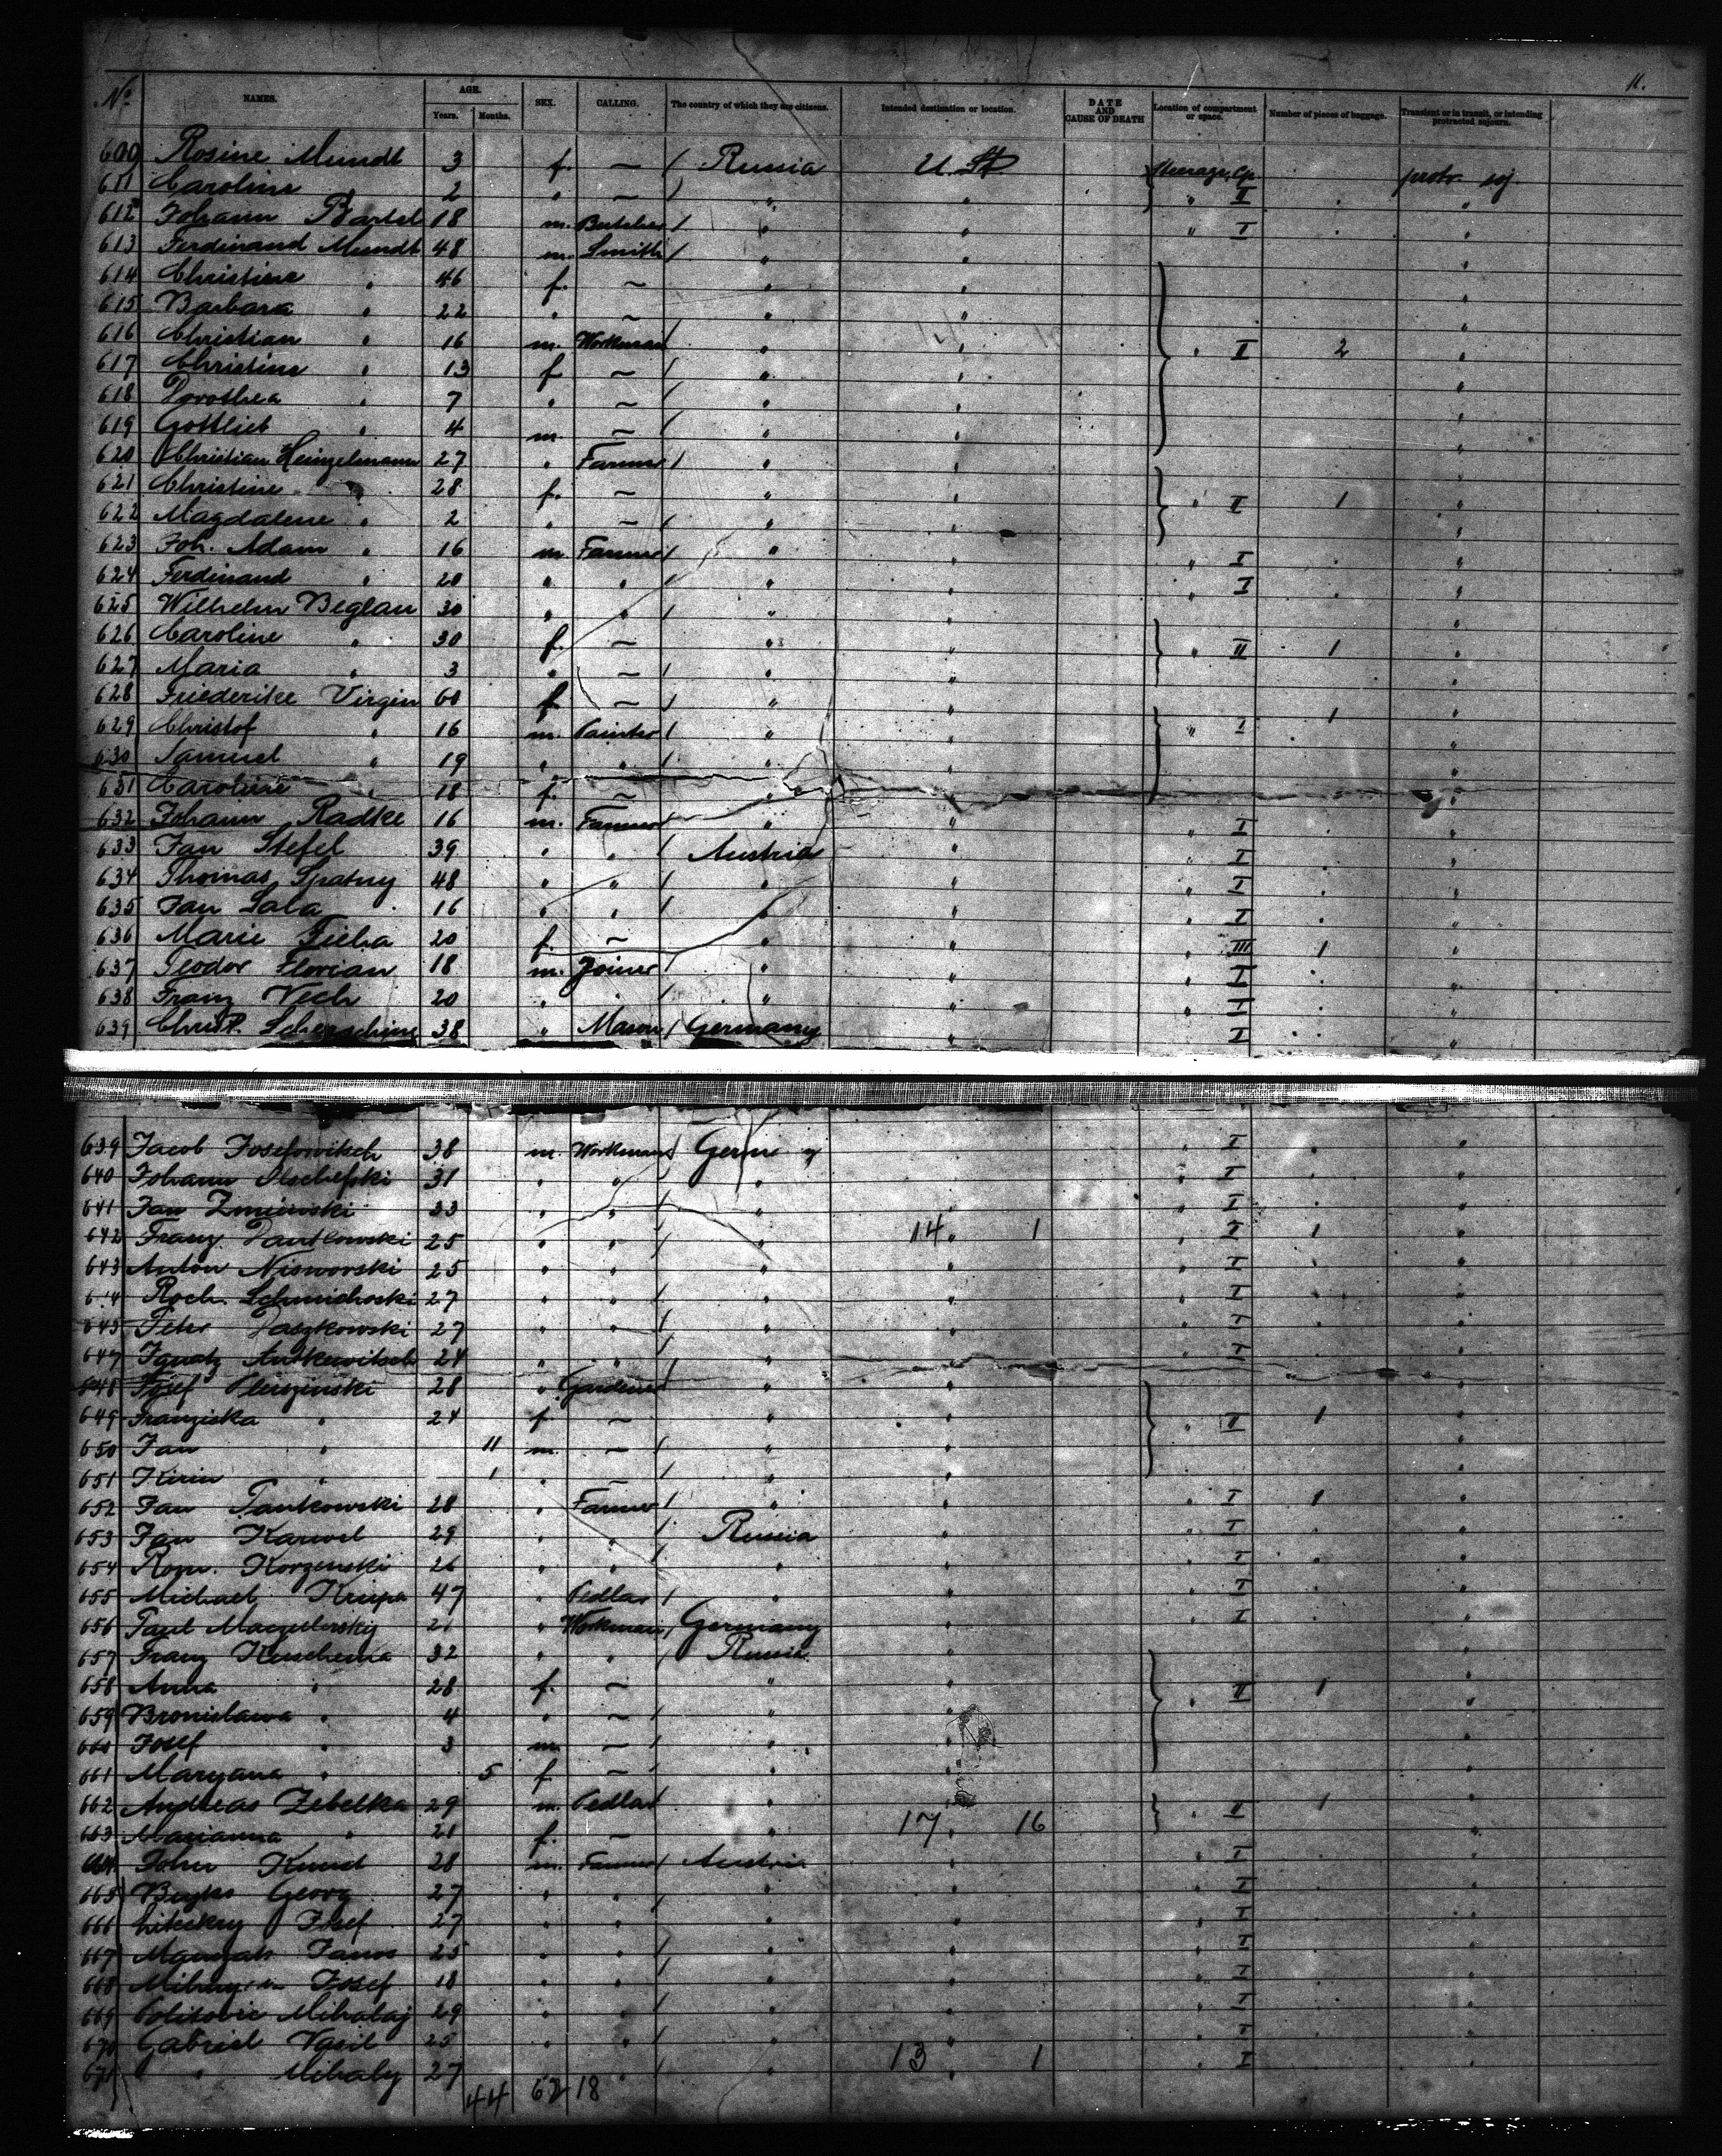 11.
No. NAMES. AGE. Years. Months. SEX. CALLING. The country of which they are citizens. Intended destination or location. DATE AND CAUSE OF DEATH Location of compartment or space. Number of pieces of baggage. Transient or in transit, or intending protracted sojourn.
600 Rosine Mundt 3 f. — / Russia U. St Steerage, Cp. protr. soj.
611 Caroline 2 " — / " " " II . "
612 Johann Bartel 18 m. Butcher / " " " I . "
613 Ferdinand Mundt 48 m. Smith / " " "
614 Christine " 46 f. — " " "
615 Barbara " 22 " — " "
616 Christian " 16 m. Workman " " " II 2 "
617 Christine " 13 f — / " " "
618 Dorothea " 7 " — / " " "
619 Gottlieb " 4 m. — / " " "
620 Christian Heinzelmann 27 " Farmer / " " "
621 Christine " 28 f. — " " " II 1 "
622 Magdalene " 2 " — / " " "
623 Joh. Adam " 16 m Farmer / " " I . "
624 Ferdinand " 20 " " / " " " I . "
625 Wilhelm Beglau 30 " " / " "
626 Caroline " 30 f. — " " II 1 "
627 Maria " 3 " — / " " "
628 Friederike Virgin 60 f. — / " " 1 "
629 Christof " 16 m. Painter / " " " I "
630 Samuel " 19 " " / " " "
631 Caroline " 18 f. — " " "
632 Johann Radke 16 m. Farmer " " " I . "
633 Jan Stefel 39 " " / Austria " " I . "
634 Thomas Spatny 48 " " / " " " I . "
635 Jan Sala 16 " " / " " " I . "
636 Marie Ficha 20 f. — " " III 1 "
637 Teodor Florian 18 m. Joiner / " " " I . "
638 Franz Vech 20 " " / " " " I . "
639 Christ. 38 " Mason / Germany " I . "
639 Jacob Josefowitsch 38 m. Workman / Germ y " I . "
640 Johann Olschefski 31 " " " " I "
641 Jan Zmiewski 33 " " " " I . "
642 Franz Pawlowski 25 " " / " 14 " 1 " I 1 "
643 Anton Nisworski 25 " " / " " " I . "
644 Roch 27 " " / " " " I . "
645 Peter Daszkowski 27 " " / " " " I . "
647 Ignatz Antkewitsch 24 " " / " " " I . "
648 Josef 28 " Gardener / " " "
649 Franziska " 24 f — " " " II 1 "
650 Jan " 11 m. — / " " "
651 " 1 " — / " " "
652 Jan Pankowski 28 " Farmer / " " " I 1 "
653 Jan Karwel 29 " " / Russia " " I . "
654 Rom. Korzenski 26 " " / " " " I . "
655 Michael Krupa 47 " Pedlar / " " " I . "
656 Paul 21 " Workman / Germany " " I . "
657 Franz Kuschema 32 " " / Russia " "
658 Anna " 28 f. — " " " II 1 "
659 Bronislawa " 4 " — / " " "
660 Josef " 3 m. — / " " "
661 Maryana " 5 f — / " " "
662 Andreas Zebelka 29 m. Pedlar " " " II 1 "
663 Marianna " 21 f. — " 17 " 16 "
664 John 28 m. Farmer / Austria " " I . "
665 Georg 27 " " / " " " I . "
666 Josef 27 " " / " " " I . "
667 Janos 25 " " / " " " I . "
668 Josef 18 " " / " " " I . "
669 Mihalaj 29 " / " " " I . "
670 Gabriel Vasil 25 " " / " " " I . "
671 " Mihaly 27 " / " 13 " 1 " I . "
44 62 18